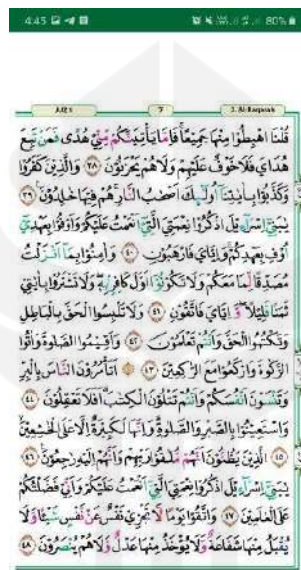 4:45 80%
JUZ 1 7 2. Al-Baqarah
قُلْنَا اهْبِطُوْا مِنْهَا جَمِيْعًا فَاِمَّا يَأْتِيَنَّكُمْ مِّنِّيْ هُدًى فَمَنْ تَبِعَ
هُدَايَ فَلَا خَوْفٌ عَلَيْهِمْ وَلَا هُمْ يَحْزَنُوْنَ ٣٨ وَالَّذِيْنَ كَفَرُوْا
وَكَذَّبُوْا بِاٰيٰتِنَآ اُولٰۤىِٕكَ اَصْحٰبُ النَّارِ هُمْ فِيْهَا خٰلِدُوْنَ ٣٩
يٰبَنِيْٓ اِسْرَاۤءِيْلَ اذْكُرُوْا نِعْمَتِيَ الَّتِيْٓ اَنْعَمْتُ عَلَيْكُمْ وَاَوْفُوْا بِعَهْدِيْٓ
اُوْفِ بِعَهْدِكُمْ وَاِيَّايَ فَارْهَبُوْنِ ٤٠ وَاٰمِنُوْا بِمَآ اَنْزَلْتُ
مُصَدِّقًا لِّمَا مَعَكُمْ وَلَا تَكُوْنُوْٓا اَوَّلَ كَافِرٍۢ بِهٖ وَلَا تَشْتَرُوْا بِاٰيٰتِيْ
ثَمَنًا قَلِيْلًا وَّاِيَّايَ فَاتَّقُوْنِ ٤١ وَلَا تَلْبِسُوا الْحَقَّ بِالْبَاطِلِ
وَتَكْتُمُوا الْحَقَّ وَاَنْتُمْ تَعْلَمُوْنَ ٤٢ وَاَقِيْمُوا الصَّلٰوةَ وَاٰتُوا
الزَّكٰوةَ وَارْكَعُوْا مَعَ الرّٰكِعِيْنَ ٤٣ اَتَأْمُرُوْنَ النَّاسَ بِالْبِرِّ
وَتَنْسَوْنَ اَنْفُسَكُمْ وَاَنْتُمْ تَتْلُوْنَ الْكِتٰبَ اَفَلَا تَعْقِلُوْنَ ٤٤
وَاسْتَعِيْنُوْا بِالصَّبْرِ وَالصَّلٰوةِ وَاِنَّهَا لَكَبِيْرَةٌ اِلَّا عَلَى الْخٰشِعِيْنَ
٤٥ الَّذِيْنَ يَظُنُّوْنَ اَنَّهُمْ مُّلٰقُوْا رَبِّهِمْ وَاَنَّهُمْ اِلَيْهِ رٰجِعُوْنَ ٤٦
يٰبَنِيْٓ اِسْرَاۤءِيْلَ اذْكُرُوْا نِعْمَتِيَ الَّتِيْٓ اَنْعَمْتُ عَلَيْكُمْ وَاَنِّيْ فَضَّلْتُكُمْ
عَلَى الْعٰلَمِيْنَ ٤٧ وَاتَّقُوْا يَوْمًا لَّا تَجْزِيْ نَفْسٌ عَنْ نَّفْسٍ شَيْـًٔا وَّلَا
يُقْبَلُ مِنْهَا شَفَاعَةٌ وَّلَا يُؤْخَذُ مِنْهَا عَدْلٌ وَّلَا هُمْ يُنْصَرُوْنَ ٤٨